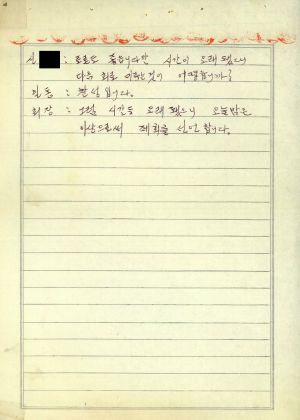 신 : 토론도 좋습니다만 시간이 오래 됐으니
다음 회로 미루는것이 어떨합니까?
일동 : 찬성입니다.
회장 : 그럼 시간도 오래 됐으니 오늘밤은
이상으로써 폐회를 선언합니다.